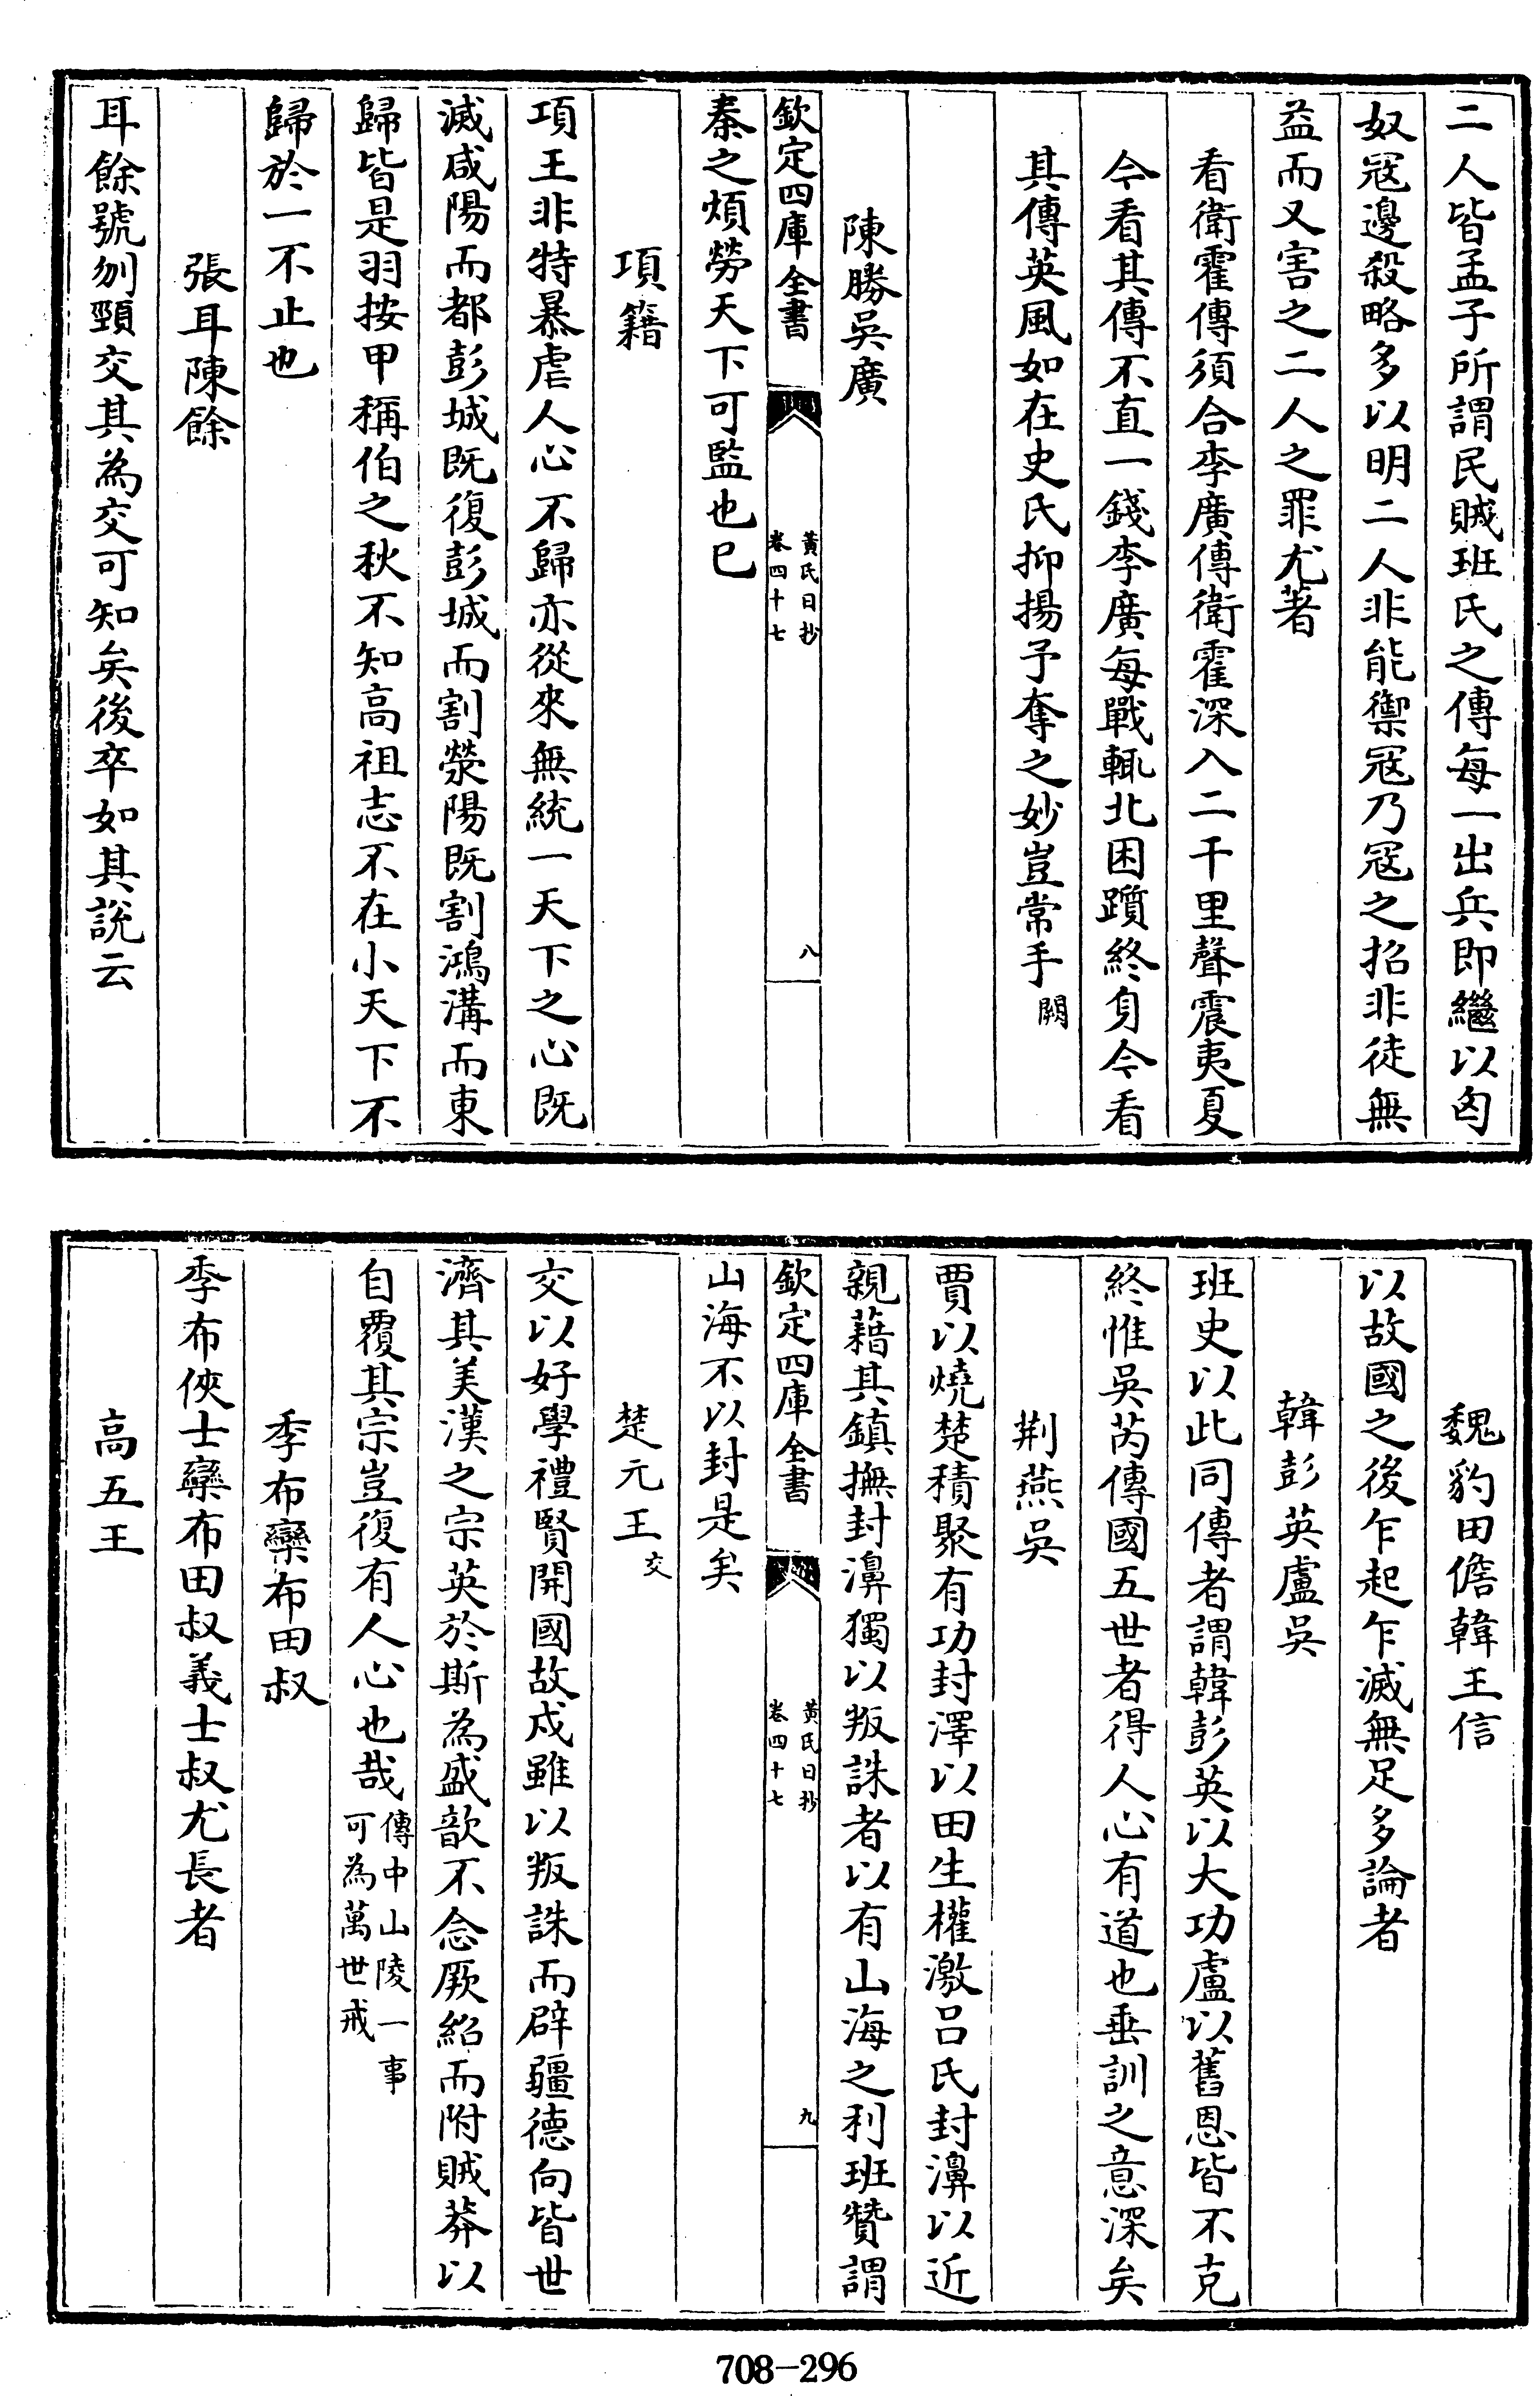 二人皆孟子所謂民賊班氏之傳每一出兵即繼以匈
奴冦邊殺略多以明二人非能禦冦乃冦之招非徒無
益而又害之二人之罪尤著
看衛霍傳須合李廣傳衛霍深入二千里聲震夷夏
今看其傳不直一錢李廣每戰輒北困躓終身今看
其傳英風如在史氏抑揚予奪之妙豈常手闕
陳勝吳廣
欽定四庫全書
黃氏日抄
卷四十七
八
秦之煩勞天下可監也巳
項籍
項王非特暴虐人心不歸亦從來無統一天下之心既
滅咸陽而都彭城既復彭城而割滎陽既割鴻溝而東
歸皆是羽按甲稱伯之秋不知高祖志不在小天下不
歸於一不止也
張耳陳餘
耳餘號刎頸交其為交可知矣後卒如其說云
魏豹田儋韓王信
以故國之後乍起乍滅無足多論者
韓彭英盧吳
班史以此同傳者謂韓彭英以大功盧以舊恩皆不克
終惟吳芮傳國五世者得人心有道也垂訓之意深矣
荆燕吳
賈以燒楚積聚有功封澤以田生權激呂氏封濞以近
親藉其鎮撫封濞獨以叛誅者以有山海之利班贊謂
欽定四庫全書
黃氏日抄
卷四十七
九
山海不以封是矣
楚元王交
交以好學禮賢開國故戍雖以叛誅而辟疆德向皆世
濟其美漢之宗英於斯為盛歆不念厥紹而附賊莽以
自覆其宗豈復有人心也哉傳中山陵一事
可為萬世戒
季布欒布田叔
季布俠士欒布田叔義士叔尤長者
高五王
708-296